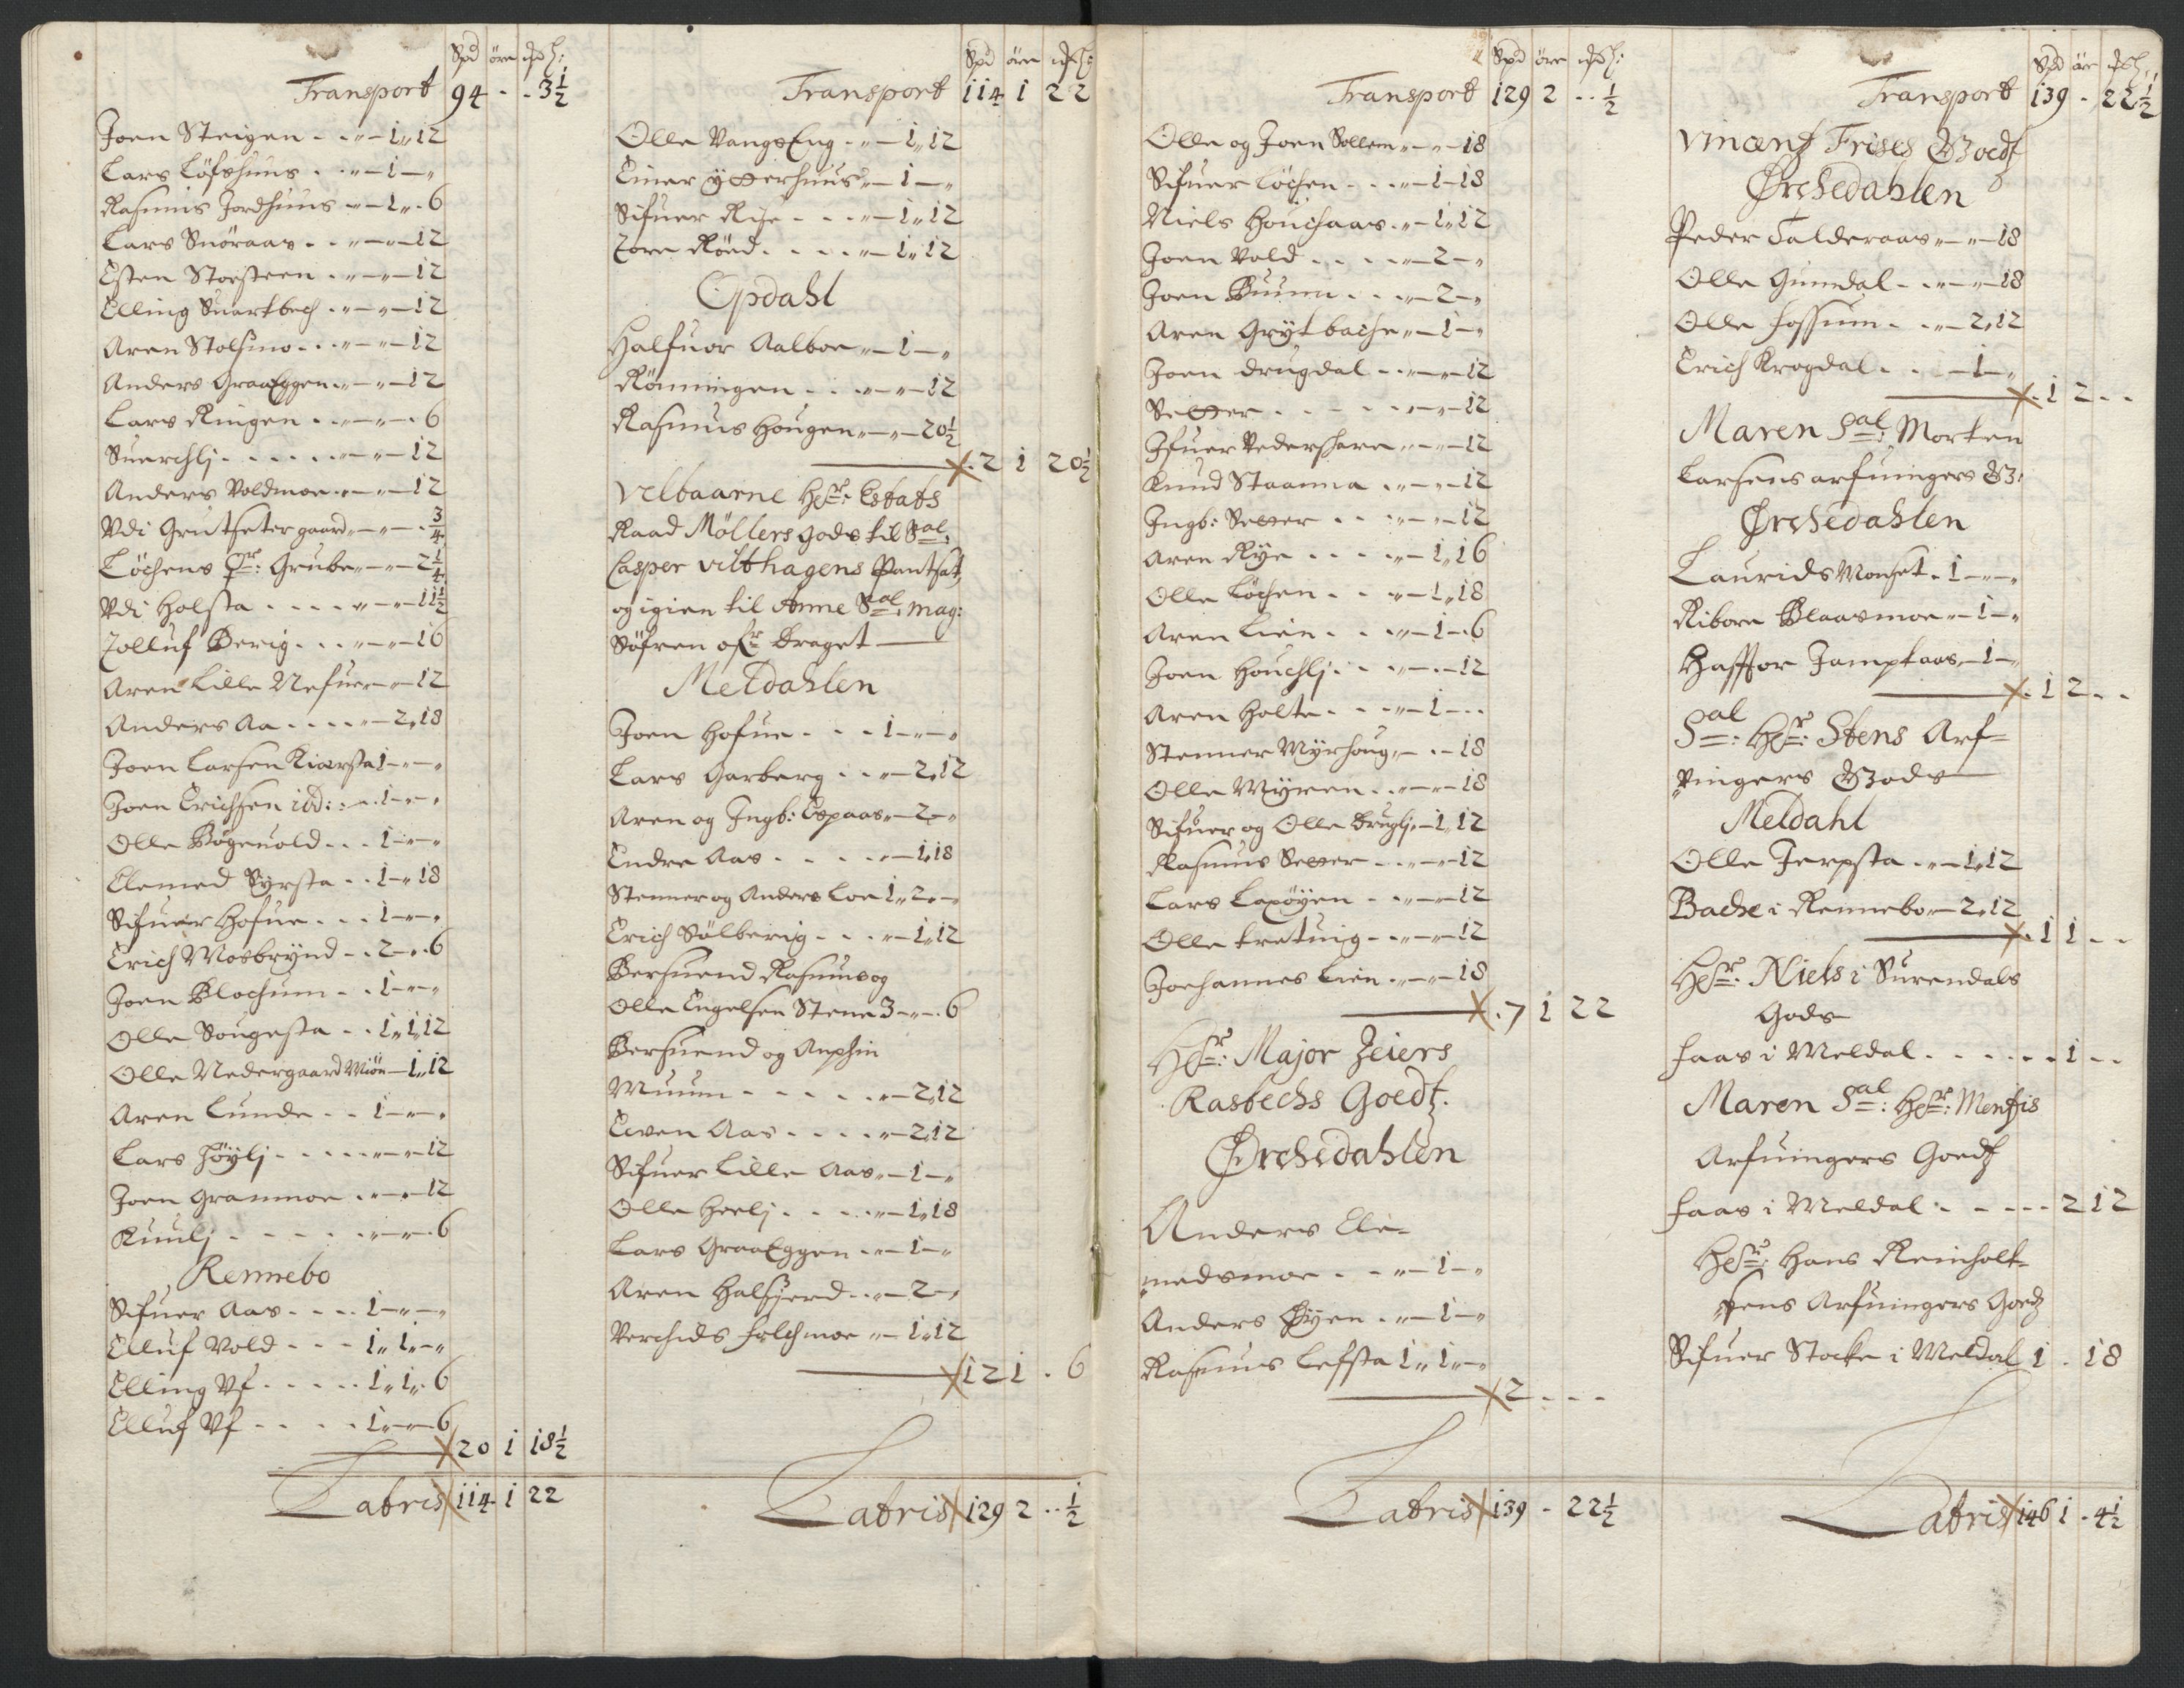 Spd öre mß:
Transport 94 - - 3½
Joen Steigen - - „ - 1 „ 12
Lars Löfshuus - - „ - 1 - „
Rasmus Jordhuus - „ - 1 „ - 6
Lars Snöraas - - „ - „ - 12
Esten Storsteen - „ - „ - 12
Elling Suartbech - „ - „ - 12
Aren Stolsmo - - „ - „ - 12
Anders GraaEggen - „ - „ - 12
Lars Ringen - - „ - „ - 6
Suerchlj - - - - - „ - „ - 12
Anders Voldmoe - „ - „ - 12
Vdi Grutsetergaard „ - „ - ¾
Löchens Qr: Grube „ - „ - 2¼
Vdi Holsta - - - - „ - „ - 11½
Tolluf Berig - - „ - „ - 16
Aren Lille Nefuer - „ - 12
Anders Aa - - - - „ - 2 „ 18
Joen Larsen Kiærsta 1 - „ - „
Joen Erichsen ibd: - 1 - „ - „
Olle Bögeuold - - 1 - „ - „
Clemed Syrsta - - 1 - „ 18
Sifuer Hofue - - - 1 - „ - „
Erich Mosbrynd - - 2 - „ - 6
Joen Blochum - - 1 - „ - „
Olle Sougesta - - 1 „ 1 „ 12
Olle Nedergaard Miöe - 1 „ 12
Aren Lunde - - 1 - „ - „
Lars Höylj - - - - - „ - 12
Joen Grammoe - - „ - „ - 12
Kuulj - - - - - „ - „ - 6
Rennebo
Sifuer Aas - - - - 1 - „ - „
Elluf Vold - - - 1 „ 1 „ - „
Elling Vf - - - - - 1 „ 1 „ - 6
Elluf Vf - - - - 1 „ - „ - 6
20 1 18½
Latris 114 1 22
Spd öre mß:
Transport 114 1 22
Olle VangsEng - „ - 1 „ 12
Einer ytterhuus „ - 1 - „
Sifuer Rise - - - „ - 1 „ 12
Tore Röed - - - - „ - 1 „ 12
Opdahl
Halfuor Aalboe „ - 1 - „
Rönningen - - - „ - „ - 12
Rasmus Hougen „ - „ - 20½
2 1 20½
Velbaarne Hr: Estats
Raad Möllers gods til Sal:
Casper Vilthagens Pantsat,
og igien til Anne Sal: mag:
Söfren ofr draget
Meldahlen
Joen Hofue - - - 1 - „ - „
Lars Garberg - - „ - 2 „ 12
Aren og Ingb: Espaas „ - 2 - „
Endre Aas - - - - „ - 1 „ 18
Stenner og Anders Loe 1 „ 2 „ - „
Erich Sölberig - - - „ - 1 „ 12
Bersuend Rasmus og
Olle Engelsen Stene 3 - „ - 6
Bersuend og Anphin
Muum - - - - - „ - 2 „ 12
Ewen Aas - - - - „ - 2 „ 12
Sifuer Lille Aas „ - 1 - „
Olle Heelj - - - - „ - 1 „ 18
Lars GraaEggen - „ - 1 - „
Aren Halsjerd - - „ - 2 - „
Verchids Folchmoe „ - 1 „ 12
12 1 - 6
Latris 129 2 - - ½
Spd öre mß:
Transport 129 2 - - ½
Olle og Joen Sollem „ - „ - 18
Sifuer Löchen - - - „ - 1 - 18
Niels Houchaas - „ - 1 „ 12
Joen Vold - - - - „ - 2 - „
Joen Buum - - - „ - 2 - „
Aren Grytbache „ - 1 - „
Joen drugdal - - „ - „ - 12
Setter - - - - - „ - „ - 12
Ifuer Vedershare „ - „ - 12
Knud Staama - „ - „ - 12
Ingb: Setter - - „ - „ - 12
Aren Rye - - - - „ - 1 „ 16
Olle Löchen - - „ - 1 „ 18
Aren Lien - - - „ - 1 - 6
Joen Houchlj - - „ - „ - 12
Aren Holte - - - „ - 1 - - -
Stenner Myrhoug „ - „ - 18
Olle Myren - - „ - „ - 18
Sifuer og Olle druglj „ - 1 „ 12
Rasmus Setter - - „ - „ - 12
Lars Laxöyen - - „ - „ - 12
Olle tretuig - - „ - „ - 12
Joehannes Lien - „ - „ - 18
7 1 22
Hr: Major Zeiers
Rasbechs Goedtz.
Ørchedahlen
Anders Ele-
medsmoe - - „ - 1 - „
Anders Øyen - „ - 1 - „
Rasmus Lefsta 1 „ 1 „ - „
2 - - -
Latris 139 - 22½
Spd öre mß:
Transport 139 - 22½
Vincentz Frises Goedtz
Ørchedahlen
Peder Talderaas „ - „ - 18
Olle Gumdal - - „ - „ - 18
Olle Fossum - - „ - 2 „ 12
Erich Krogdal - - - 1 - „
1 2 - -
Maren Sal: Morten
Larsens arfuingers G:
Ørchedahlen
Laurids Monset - 1 - „ - „
Riborе Blaasmoe „ - 1 - „
Haffor Jamptaas - 1 - „
1 2 - -
Sal: Hr: Stens Arf-
vingers Gods
Meldahl
Olle Jerpsta - - „ - 1 „ 12
Bache i Rennebo „ - 2 „ 12
1 1 - -
Hr: Niels i Surendals
Gods
Faas i Meldal - - - - - - 1 - -
Maren Sal: Hr: Mentzis
Arfuingers Goedtz
Faas i Meldal - - - - - 2 12
Hr: Hans Reinholt-
sens Arfuingers Goedtz
Sifuer Stocke i Meldal 1 - 18
Latris 146 1 - 4½